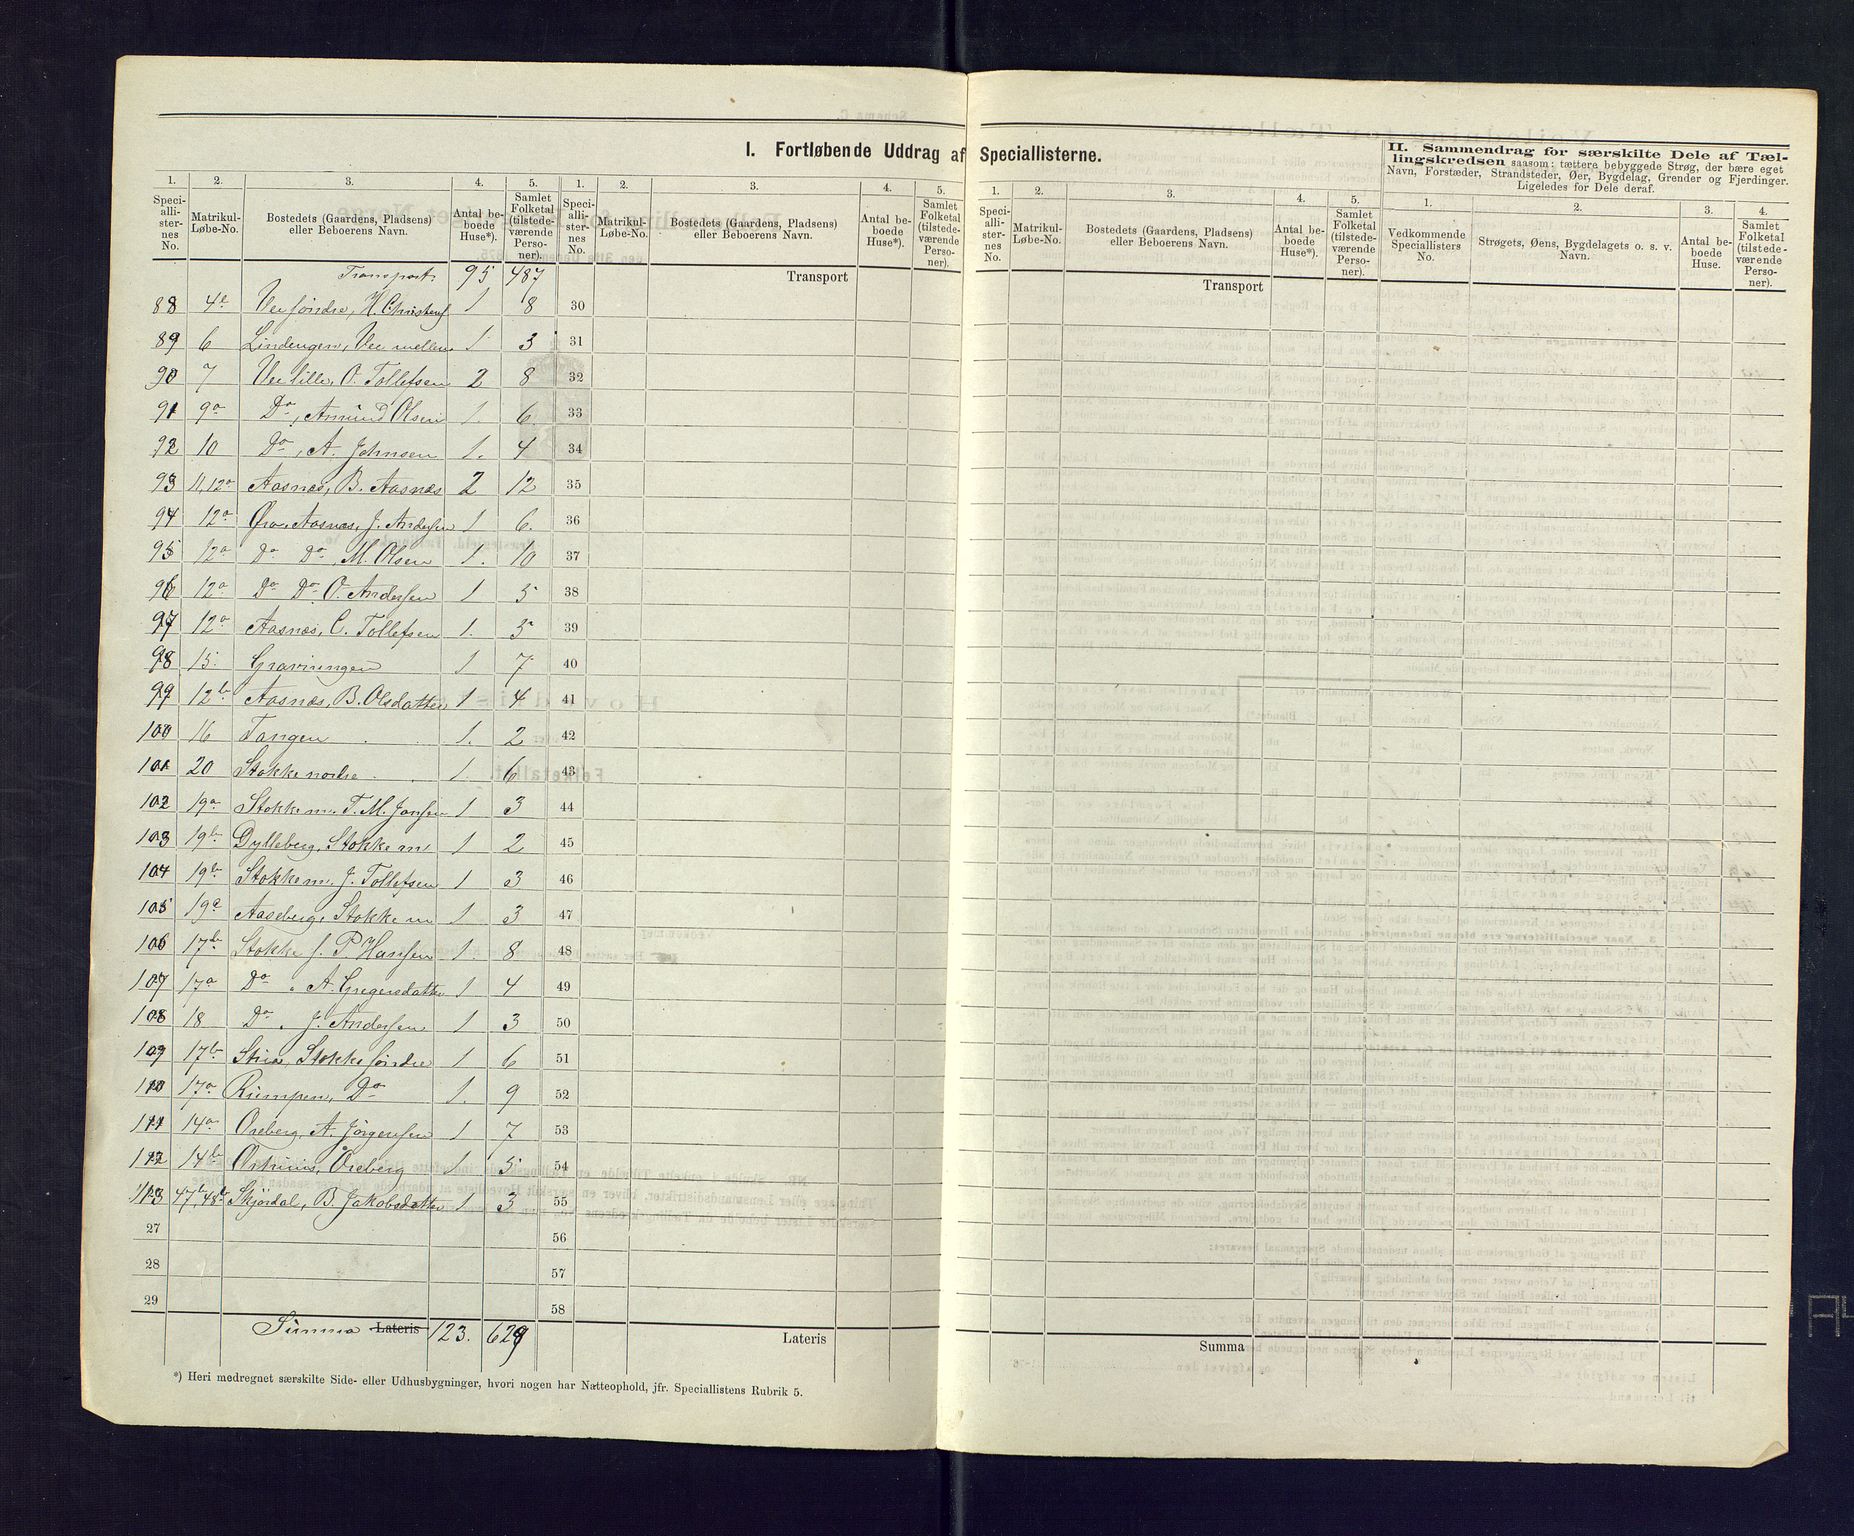 I. Fortløbende Uddrag af Speciallisterne.
II. Sammendrag for særskilte Dele af Tællingskredsen saasom: tættere bebyggede Strøg, der bære eget Navn, Forstæder, Strandsteder, Øer, Bygdelag, Grender og Fjerdinger. Ligeledes for Dele deraf.
1. 2. 3. 4. 5. 1. 2. 3. 4. 5. 1. 2. 3. 4. 5. 1. 2. 3. 4.
Speciallisternes No. Matrikul-Løbe-No. Bostedets (Gaardens, Pladsens) eller Beboerens Navn. Antal beboede Huse*). Samlet Folketal (tilstedeværende Personer).
Speciallisternes No. Matrikul-Løbe-No. Bostedets (Gaardens, Pladsens) eller Beboerens Navn. Antal beboede Huse*). Samlet Folketal (tilstedeværende Personer).
Speciallisternes No. Matrikul-Løbe-No. Bostedets (Gaardens, Pladsens) eller Beboerens Navn. Antal beboede Huse*). Samlet Folketal (tilstedeværende Personer).
Vedkommende Speciallisters No. Strøgets, Øens, Bygdelagets o. s. v. Navn. Antal beboede Huse. Samlet Folketal (tilstedeværende Personer).
Transport 95 487 Transport Transport
88 4e Vee søndre, H. Christens 1 8 30
89 6 Lindengen, Vee mellem 1 3 31
90 7 Vee lille, O. Tollefsen 2 8 32
91 9a Do, Amund Olsen 1. 6. 33
92 10 Do, A. Johnsen 1. 4 34
93 11,12a Aasnæs, B. Aasnæs 2 12 35
94 12a Øra, Aasnæs, J. Andersen 1 6. 36
95 12a Do Do, M. Olsen 1. 10 37
96 12a Do Do O. Andersen 1 5 38
97 12a Aasnæs, C. Tollefsen 1. 5 39
98 15. Gravningen 1 7 40
99 12b Aasnæs, B. Olsdatter 1 4 41
100 16 Tangen 1. 2 42
101 20 Stokke nordre 1. 6 43
102 19a Stokke m. T. M. Jansen 1 3 44
103 19b Dylleberg, Stokke m 1 2 45
104 19b Stokke m. J. Tollefsen 1 3 46
105 19a Aaseberg, Stokke m 1 3 47
106 17b Stokke s. P Hansen 1 8 48
107 17a Do, A. Gregersdatter 1 4 49
108 18 Do, J. Andersen 1 3 50
109 17b Stua, Stokke søndre 1 6 51
110 17a Rumpen, Do 1. 9 52
111 14a Oreberg, A. Jørgensen 1 7 53
112 14b Oreberg 1 5 54
113 47b, 48b Skjørdal, B. Jakobsdatter 1 3 55
27 56
28 57
29 58
Summa Lateris 123. 629 Lateris Summa
*) Heri medregnet særskilte Side- eller Udhusbygninger, hvori nogen har Natteophold, jfr. Speciallistens Rubrik 5.